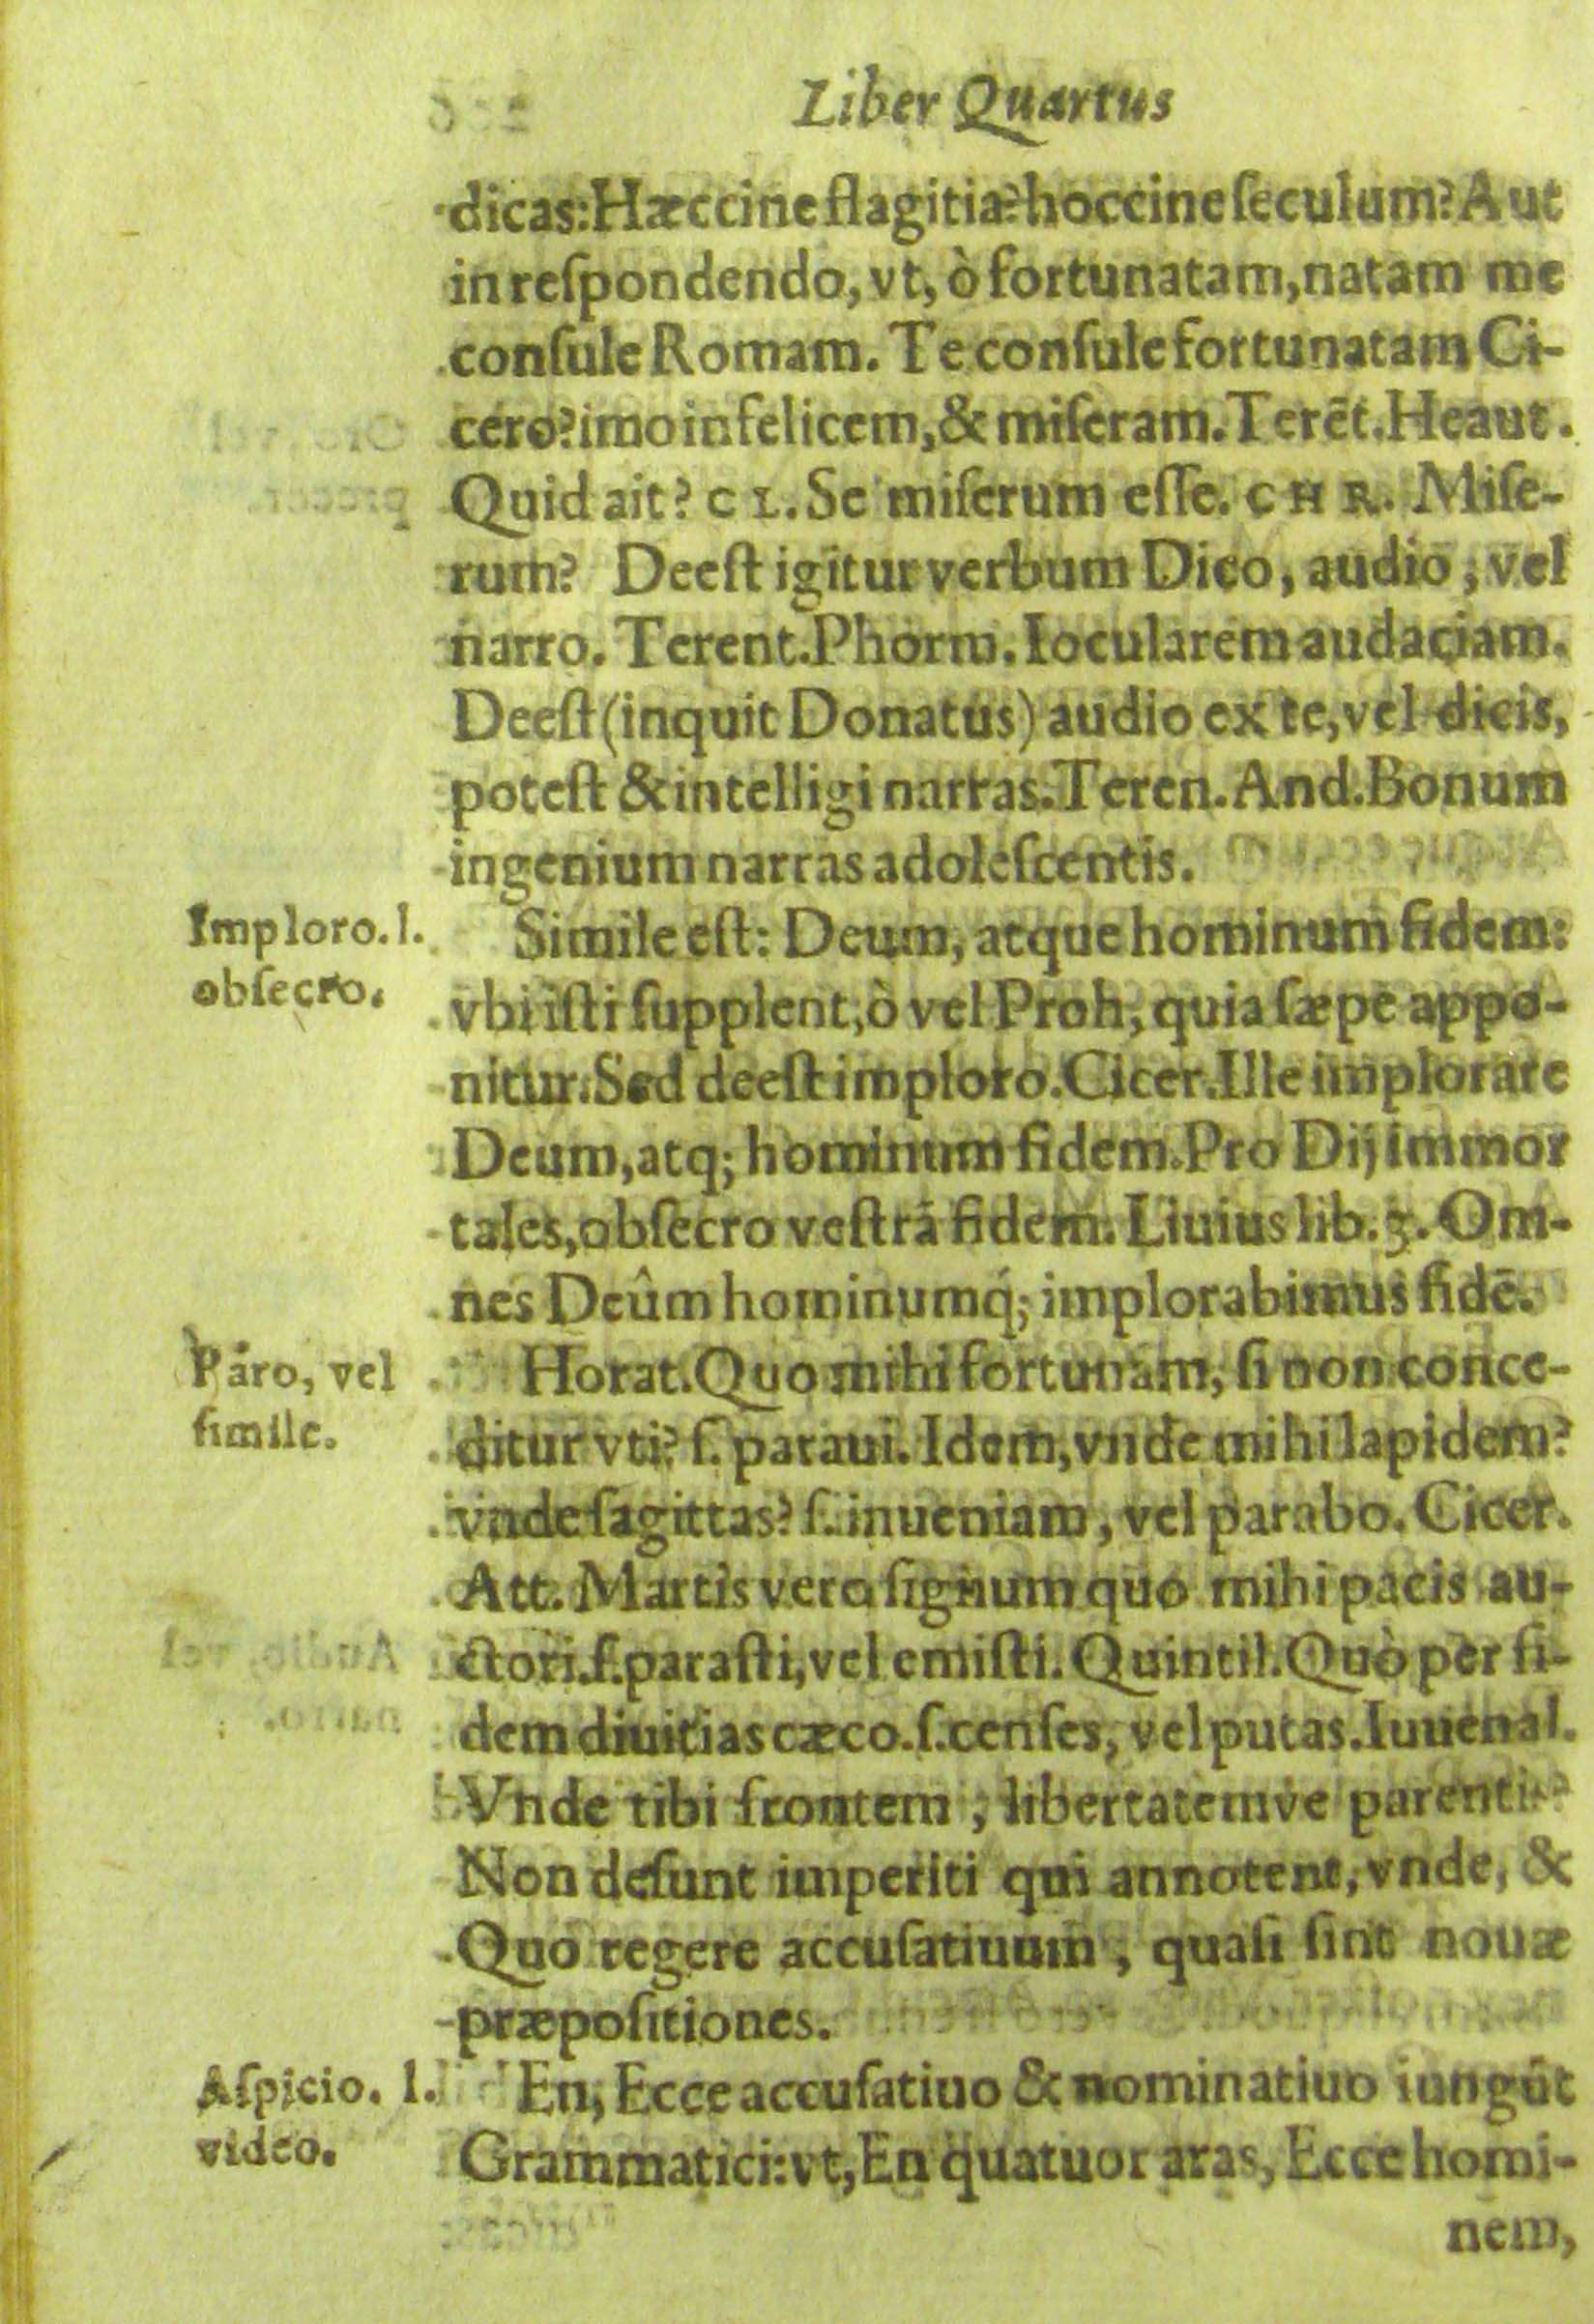 Liber Quartus
dicas: Hæccine flagitia? hoccine ſeculum? Aut
in reſpondendo, vt, ò fortunatam, natam me
conſule Romam. Te conſule fortunatam Ci-
cero? imo infelicem, & miſeram. Terēt. Heaut.
Quid ait? CL. Se miſerum eſſe. CHR. Miſe-
rum? Deeſt igitur verbum Dico, audio, vel
narro. Terent. Phorm. Iocularem audaciam.
Deeſt (inquit Donatus) audio ex te, vel dicis,
poteſt & intelligi narras. Teren. And. Bonum
ingenium narras adoleſcentis.
Imploro. l.
obſecro.
Simile eſt: Deum, atque hominum fidem:
vbi iſti ſupplent, ò vel Proh, quia ſæpe appo-
nitur. Sed deeſt imploro. Cicer. Ille implorare
Deum, atq; hominum fidem. Pro Dij immor
tales, obſecro veſtrā fidem. Liuius lib. 3. Om-
nes Deûm hominumq́; implorabimus fidē.
Paro, vel
ſimile.
Horat. Quo mihi fortunam, ſi non conce-
ditur vti? ſ. paraui. Idem, vnde mihi lapidem?
vnde ſagittas? ſ. inueniam, vel parabo. Cicer.
Att. Martis vero ſignum quo mihi pacis au-
ctori. ſ. paraſti, vel emiſti. Quintil. Quò per fi-
dem diuitias cæco. ſ. cenſes, vel putas. Iuuenal.
Vnde tibi frontem, libertatemve parentis?
Non deſunt imperiti qui annotent, vnde, &
Quo regere accuſatiuum, quaſi ſint nouæ
præpoſitiones.
Aſpicio. l.
video.
En, Ecce accuſatiuo & nominatiuo iungūt
Grammatici: vt, En quatuor aras, Ecce homi-
nem,